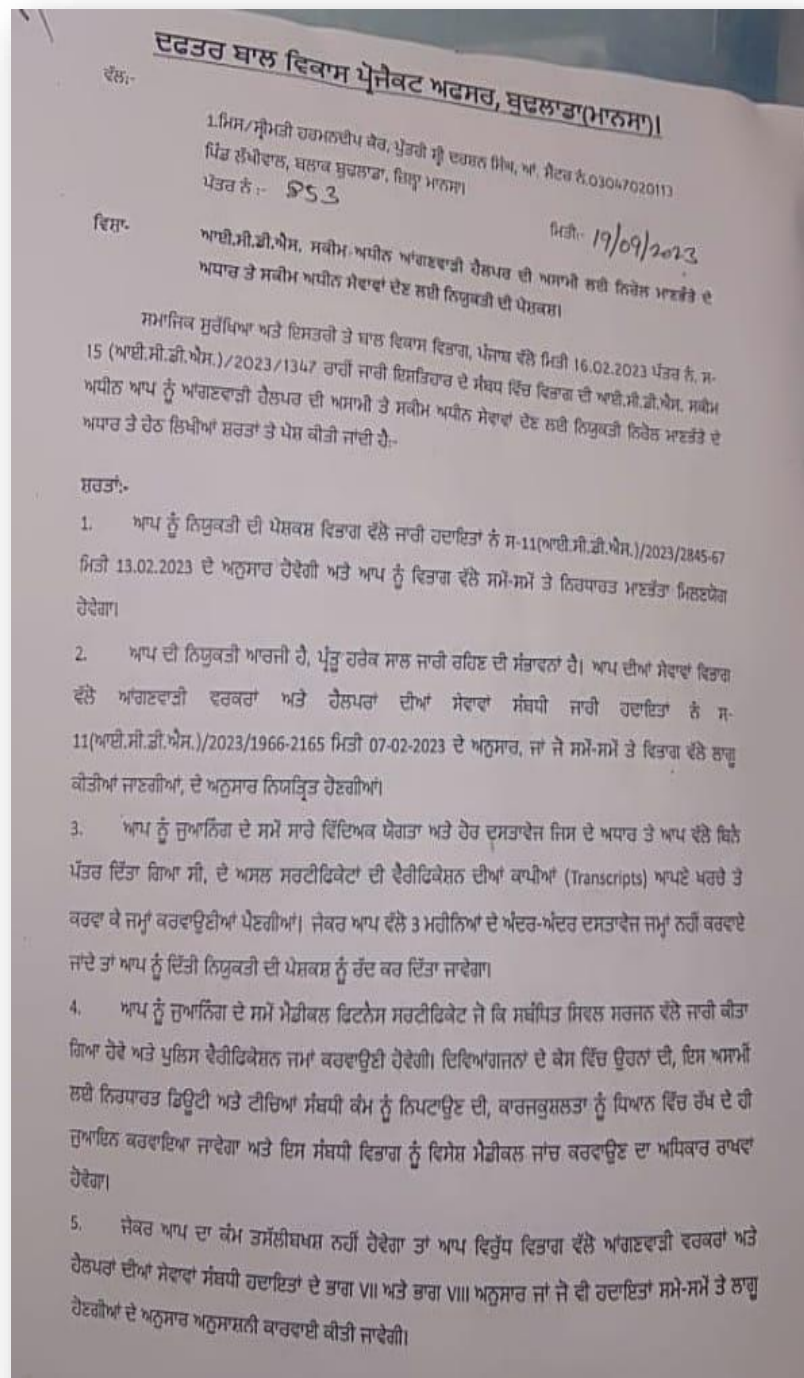 ਦਫਤਰ ਬਾਲ ਵਿਕਾਸ ਪ੍ਰੋਜੈਕਟ ਅਫਸਰ, ਬੁਢਲਾਡਾ(ਮਾਨਸਾ)।
ਵੱਲ:-
1.ਮਿਸ/ਸ੍ਰੀਮਤੀ ਹਰਮਨਦੀਪ ਕੌਰ, ਪੁੱਤਰੀ ਸ੍ਰੀ ਦਰਸ਼ਨ ਸਿੰਘ, ਆਂ. ਸੈਂਟਰ ਨੰ.03047020113
ਪਿੰਡ ਲੱਖੀਵਾਲ, ਬਲਾਕ ਬੁਢਲਾਡਾ, ਜ਼ਿਲ੍ਹਾ ਮਾਨਸਾ।
ਪੱਤਰ ਨੰ :- 853
ਮਿਤੀ:- 19/09/2023
ਵਿਸ਼ਾ-
ਆਈ.ਸੀ.ਡੀ.ਐਸ. ਸਕੀਮ ਅਧੀਨ ਆਂਗਣਵਾੜੀ ਹੈਲਪਰ ਦੀ ਅਸਾਮੀ ਲਈ ਨਿਰੋਲ ਮਾਣਭੱਤੇ ਦੇ
ਅਧਾਰ ਤੇ ਸਕੀਮ ਅਧੀਨ ਸੇਵਾਵਾਂ ਦੇਣ ਲਈ ਨਿਯੁਕਤੀ ਦੀ ਪੇਸ਼ਕਸ਼।
ਸਮਾਜਿਕ ਸੁਰੱਖਿਆ ਅਤੇ ਇਸਤਰੀ ਤੇ ਬਾਲ ਵਿਕਾਸ ਵਿਭਾਗ, ਪੰਜਾਬ ਵੱਲੋਂ ਮਿਤੀ 16.02.2023 ਪੱਤਰ ਨੰ. ਸ-
15 (ਆਈ.ਸੀ.ਡੀ.ਐਸ.)/2023/1347 ਰਾਹੀਂ ਜਾਰੀ ਇਸ਼ਤਿਹਾਰ ਦੇ ਸੰਬਧ ਵਿੱਚ ਵਿਭਾਗ ਦੀ ਆਈ.ਸੀ.ਡੀ.ਐਸ. ਸਕੀਮ
ਅਧੀਨ ਆਪ ਨੂੰ ਆਂਗਣਵਾੜੀ ਹੈਲਪਰ ਦੀ ਅਸਾਮੀ ਤੇ ਸਕੀਮ ਅਧੀਨ ਸੇਵਾਵਾਂ ਦੇਣ ਲਈ ਨਿਯੁਕਤੀ ਨਿਰੋਲ ਮਾਣਭੱਤੇ ਦੇ
ਅਧਾਰ ਤੇ ਹੇਠ ਲਿਖੀਆਂ ਸ਼ਰਤਾਂ ਤੇ ਪੇਸ਼ ਕੀਤੀ ਜਾਂਦੀ ਹੈ:-
ਸ਼ਰਤਾਂ:-
1. ਆਪ ਨੂੰ ਨਿਯੁਕਤੀ ਦੀ ਪੇਸ਼ਕਸ਼ ਵਿਭਾਗ ਵੱਲੋਂ ਜਾਰੀ ਹਦਾਇਤਾਂ ਨੰ ਸ-11(ਆਈ.ਸੀ.ਡੀ.ਐਸ.)/2023/2845-67
ਮਿਤੀ 13.02.2023 ਦੇ ਅਨੁਸਾਰ ਹੋਵੇਗੀ ਅਤੇ ਆਪ ਨੂੰ ਵਿਭਾਗ ਵੱਲੋਂ ਸਮੇਂ-ਸਮੇਂ ਤੇ ਨਿਰਧਾਰਤ ਮਾਣਭੱਤਾ ਮਿਲਣਯੋਗ
ਹੋਵੇਗਾ।
2. ਆਪ ਦੀ ਨਿਯੁਕਤੀ ਆਰਜੀ ਹੈ, ਪ੍ਰੰਤੂ ਹਰੇਕ ਸਾਲ ਜਾਰੀ ਰਹਿਣ ਦੀ ਸੰਭਾਵਨਾਂ ਹੈ। ਆਪ ਦੀਆਂ ਸੇਵਾਵਾਂ ਵਿਭਾਗ
ਵੱਲੋਂ ਆਂਗਣਵਾੜੀ ਵਰਕਰਾਂ ਅਤੇ ਹੈਲਪਰਾਂ ਦੀਆਂ ਸੇਵਾਵਾਂ ਸੰਬਧੀ ਜਾਰੀ ਹਦਾਇਤਾਂ ਨੰ ਸ-
11(ਆਈ.ਸੀ.ਡੀ.ਐਸ.)/2023/1966-2165 ਮਿਤੀ 07-02-2023 ਦੇ ਅਨੁਸਾਰ, ਜਾਂ ਜੋ ਸਮੇਂ-ਸਮੇਂ ਤੇ ਵਿਭਾਗ ਵੱਲੋਂ ਲਾਗੂ
ਕੀਤੀਆਂ ਜਾਣਗੀਆਂ, ਦੇ ਅਨੁਸਾਰ ਨਿਯਤ੍ਰਿਤ ਹੋਣਗੀਆਂ।
3. ਆਪ ਨੂੰ ਜੁਆਨਿੰਗ ਦੇ ਸਮੇਂ ਸਾਰੇ ਵਿੱਦਿਅਕ ਯੋਗਤਾ ਅਤੇ ਹੋਰ ਦਸਤਾਵੇਜ ਜਿਸ ਦੇ ਅਧਾਰ ਤੇ ਆਪ ਵੱਲੋਂ ਬਿਨੈ
ਪੱਤਰ ਦਿੱਤਾ ਗਿਆ ਸੀ, ਦੇ ਅਸਲ ਸਰਟੀਫਿਕੇਟਾਂ ਦੀ ਵੈਰੀਫਿਕੇਸ਼ਨ ਦੀਆਂ ਕਾਪੀਆਂ (Transcripts) ਆਪਣੇ ਖਰਚੇ ਤੇ
ਕਰਵਾ ਕੇ ਜਮ੍ਹਾਂ ਕਰਵਾਉਣੀਆਂ ਪੈਣਗੀਆਂ। ਜੇਕਰ ਆਪ ਵੱਲੋਂ 3 ਮਹੀਨਿਆਂ ਦੇ ਅੰਦਰ-ਅੰਦਰ ਦਸਤਾਵੇਜ ਜਮ੍ਹਾਂ ਨਹੀਂ ਕਰਵਾਏ
ਜਾਂਦੇ ਤਾਂ ਆਪ ਨੂੰ ਦਿੱਤੀ ਨਿਯੁਕਤੀ ਦੀ ਪੇਸ਼ਕਸ਼ ਨੂੰ ਰੱਦ ਕਰ ਦਿੱਤਾ ਜਾਵੇਗਾ।
4. ਆਪ ਨੂੰ ਜੁਆਨਿੰਗ ਦੇ ਸਮੇਂ ਮੈਡੀਕਲ ਫਿਟਨੈਸ ਸਰਟੀਫਿਕੇਟ ਜੋ ਕਿ ਸਬੰਧਿਤ ਸਿਵਲ ਸਰਜਨ ਵੱਲੋਂ ਜਾਰੀ ਕੀਤਾ
ਗਿਆ ਹੋਵੇ ਅਤੇ ਪੁਲਿਸ ਵੈਰੀਫਿਕੇਸ਼ਨ ਜਮਾਂ ਕਰਵਾਉਣੀ ਹੋਵੇਗੀ। ਦਿਵਿਆਂਗਜਨਾਂ ਦੇ ਕੇਸ ਵਿੱਚ ਉਹਨਾਂ ਦੀ, ਇਸ ਅਸਾਮੀਂ
ਲਈ ਨਿਰਧਾਰਤ ਡਿਊਟੀ ਅਤੇ ਟੀਚਿਆਂ ਸੰਬਧੀ ਕੰਮ ਨੂੰ ਨਿਪਟਾਉਣ ਦੀ, ਕਾਰਜਕੁਸ਼ਲਤਾ ਨੂੰ ਧਿਆਨ ਵਿੱਚ ਰੱਖ ਦੇ ਹੀ
ਜੁਆਇਨ ਕਰਵਾਇਆ ਜਾਵੇਗਾ ਅਤੇ ਇਸ ਸੰਬਧੀ ਵਿਭਾਗ ਨੂੰ ਵਿਸੇਸ਼ ਮੈਡੀਕਲ ਜਾਂਚ ਕਰਵਾਉਣ ਦਾ ਅਧਿਕਾਰ ਰਾਖਵਾਂ
ਹੋਵੇਗਾ।
5. ਜੇਕਰ ਆਪ ਦਾ ਕੰਮ ਤਸੱਲੀਬਖਸ਼ ਨਹੀਂ ਹੋਵੇਗਾ ਤਾਂ ਆਪ ਵਿਰੁੱਧ ਵਿਭਾਗ ਵੱਲੋਂ ਆਂਗਣਵਾੜੀ ਵਰਕਰਾਂ ਅਤੇ
ਹੈਲਪਰਾਂ ਦੀਆਂ ਸੇਵਾਵਾਂ ਸੰਬਧੀ ਹਦਾਇਤਾਂ ਦੇ ਭਾਗ VII ਅਤੇ ਭਾਗ VIII ਅਨੁਸਾਰ ਜਾਂ ਜੋ ਵੀ ਹਦਾਇਤਾਂ ਸਮੇ-ਸਮੇਂ ਤੇ ਲਾਗੂ
ਹੋਣਗੀਆਂ ਦੇ ਅਨੁਸਾਰ ਅਨੁਸਾਸ਼ਨੀ ਕਾਰਵਾਈ ਕੀਤੀ ਜਾਵੇਗੀ।